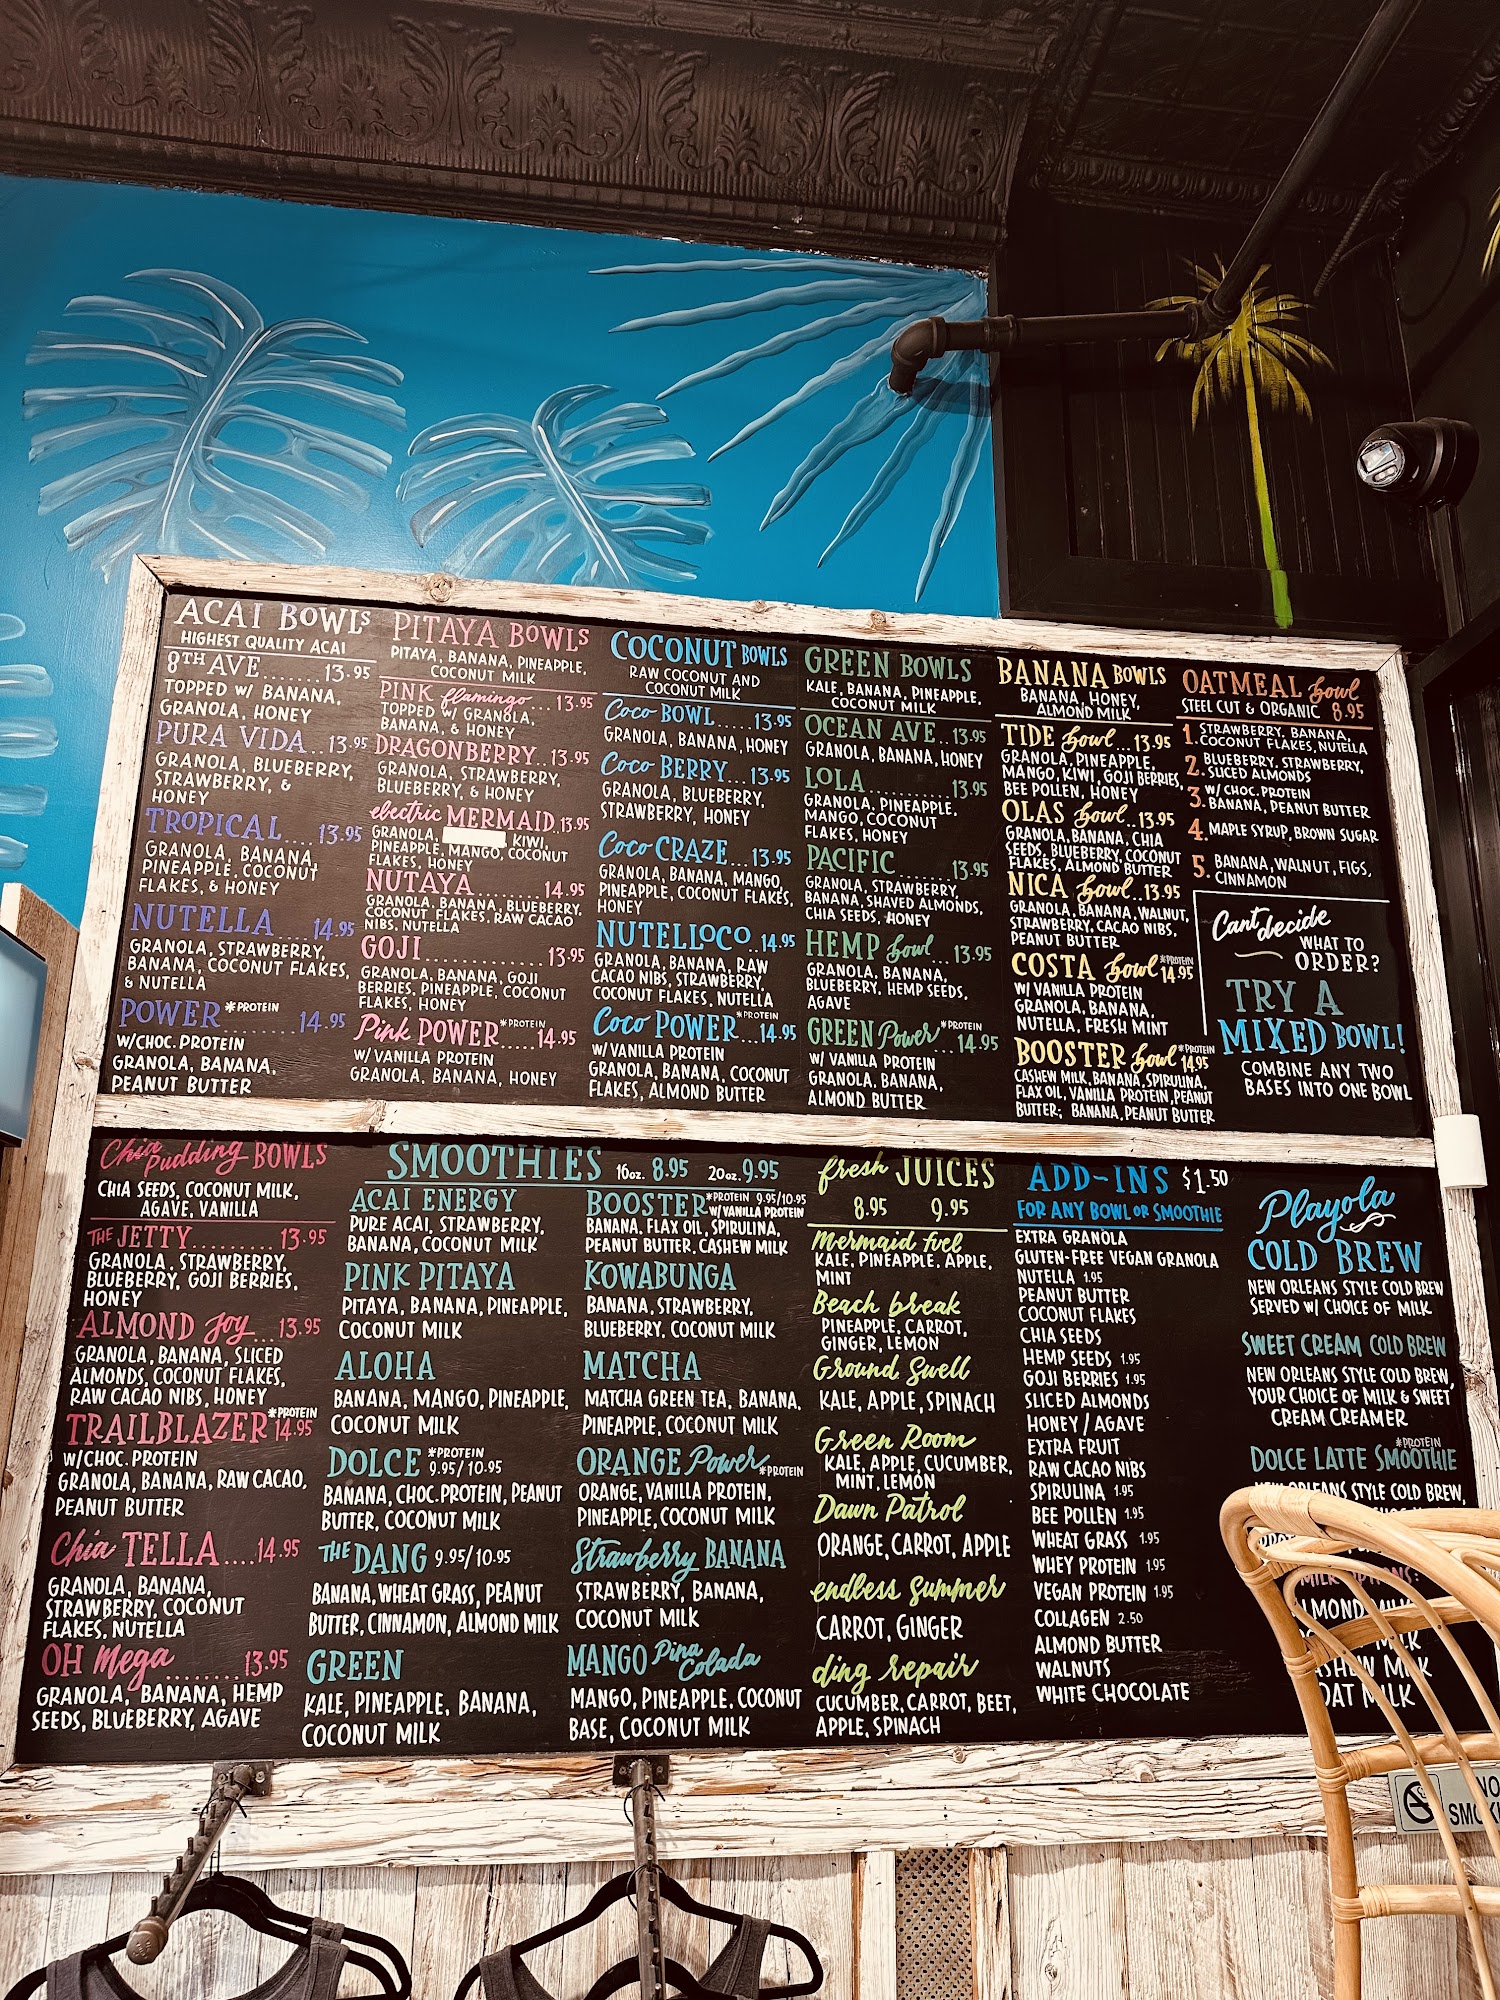 ACAI BOWLS
HIGHEST QUALITY ACAI
8TH AVE.......13.95
TOPPED W/ BANANA,
GRANOLA, HONEY
PURA VIDA..13.95
GRANOLA, BLUEBERRY,
STRAWBERRY, &
HONEY
TROPICAL....13.95
GRANOLA, BANANA,
PINEAPPLE, COCONUT
FLAKES, & HONEY
NUTELLA....14.95
GRANOLA, STRAWBERRY,
BANANA, COCONUT FLAKES,
& NUTELLA
POWER *PROTEIN
........14.95
W/CHOC. PROTEIN
GRANOLA, BANANA,
PEANUT BUTTER
PITAYA BOWLS
PITAYA, BANANA, PINEAPPLE,
COCONUT MILK
PINK flamingo...13.95
TOPPED W/ GRANOLA,
BANANA, & HONEY
DRAGONBERRY..13.95
GRANOLA, STRAWBERRY,
BLUEBERRY, & HONEY
electric MERMAID..13.95
GRANOLA, KIWI,
PINEAPPLE, MANGO, COCONUT
FLAKES, HONEY
NUTAYA.......14.95
GRANOLA, BANANA, BLUEBERRY,
COCONUT FLAKES, RAW CACAO
NIBS, NUTELLA
GOJI............13.95
GRANOLA, BANANA, GOJI
BERRIES, PINEAPPLE, COCONUT
FLAKES, HONEY
Pink POWER *PROTEIN
....14.95
W/ VANILLA PROTEIN
GRANOLA, BANANA, HONEY
COCONUT BOWLS
RAW COCONUT AND
COCONUT MILK
Coco BOWL.....13.95
GRANOLA, BANANA, HONEY
Coco BERRY...13.95
GRANOLA, BLUEBERRY,
STRAWBERRY, HONEY
Coco CRAZE...13.95
GRANOLA, BANANA, MANGO,
PINEAPPLE, COCONUT FLAKES,
HONEY
NUTELLOCO..14.95
GRANOLA, BANANA, RAW
CACAO NIBS, STRAWBERRY,
COCONUT FLAKES, NUTELLA
Coco POWER *PROTEIN
...14.95
W/ VANILLA PROTEIN
GRANOLA, BANANA, COCONUT
FLAKES, ALMOND BUTTER
GREEN BOWLS
KALE, BANANA, PINEAPPLE,
COCONUT MILK
OCEAN AVE..13.95
GRANOLA, BANANA, HONEY
LOLA..........13.95
GRANOLA, PINEAPPLE,
MANGO, COCONUT
FLAKES, HONEY
PACIFIC......13.95
GRANOLA, STRAWBERRY,
BANANA, SHAVED ALMONDS,
CHIA SEEDS, HONEY
HEMP bowl...13.95
GRANOLA, BANANA,
BLUEBERRY, HEMP SEEDS,
AGAVE
GREEN Power *PROTEIN
...14.95
W/ VANILLA PROTEIN
GRANOLA, BANANA,
ALMOND BUTTER
BANANA BOWLS
BANANA, HONEY,
ALMOND MILK
TIDE bowl...13.95
GRANOLA, PINEAPPLE,
MANGO, KIWI, GOJI BERRIES,
BEE POLLEN, HONEY
OLAS bowl..13.95
GRANOLA, BANANA, CHIA
SEEDS, BLUEBERRY, COCONUT
FLAKES, ALMOND BUTTER
NICA bowl..13.95
GRANOLA, BANANA, WALNUT,
STRAWBERRY, CACAO NIBS,
PEANUT BUTTER
COSTA bowl *PROTEIN
14.95
W/ VANILLA PROTEIN
GRANOLA, BANANA,
NUTELLA, FRESH MINT
BOOSTER bowl *PROTEIN
14.95
CASHEW MILK, BANANA, SPIRULINA,
FLAX OIL, VANILLA PROTEIN, PEANUT
BUTTER; BANANA, PEANUT BUTTER
OATMEAL bowl
STEEL CUT & ORGANIC 8.95
1. STRAWBERRY, BANANA,
COCONUT FLAKES, NUTELLA
2. BLUEBERRY, STRAWBERRY,
SLICED ALMONDS
3. W/ CHOC. PROTEIN
BANANA, PEANUT BUTTER
4. MAPLE SYRUP, BROWN SUGAR
5. BANANA, WALNUT, FIGS,
CINNAMON
Cant decide
WHAT TO
ORDER?
TRY A
MIXED BOWL!
COMBINE ANY TWO
BASES INTO ONE BOWL
Chia Pudding BOWLS
CHIA SEEDS, COCONUT MILK,
AGAVE, VANILLA
THE JETTY.........13.95
GRANOLA, STRAWBERRY,
BLUEBERRY, GOJI BERRIES,
HONEY
ALMOND Joy...13.95
GRANOLA, BANANA, SLICED
ALMONDS, COCONUT FLAKES,
RAW CACAO NIBS, HONEY
TRAILBLAZER *PROTEIN
14.95
W/CHOC. PROTEIN
GRANOLA, BANANA, RAW CACAO,
PEANUT BUTTER
Chia TELLA....14.95
GRANOLA, BANANA,
STRAWBERRY, COCONUT
FLAKES, NUTELLA
OH Mega........13.95
GRANOLA, BANANA, HEMP
SEEDS, BLUEBERRY, AGAVE
SMOOTHIES 16oz. 8.95 20oz. 9.95
ACAI ENERGY
PURE ACAI, STRAWBERRY,
BANANA, COCONUT MILK
PINK PITAYA
PITAYA, BANANA, PINEAPPLE,
COCONUT MILK
ALOHA
BANANA, MANGO, PINEAPPLE,
COCONUT MILK
DOLCE *PROTEIN
9.95/10.95
BANANA, CHOC. PROTEIN, PEANUT
BUTTER, COCONUT MILK
THE DANG 9.95/10.95
BANANA, WHEAT GRASS, PEANUT
BUTTER, CINNAMON, ALMOND MILK
GREEN
KALE, PINEAPPLE, BANANA,
COCONUT MILK
BOOSTER *PROTEIN 9.95/10.95
W/ VANILLA PROTEIN
BANANA, FLAX OIL, SPIRULINA,
PEANUT BUTTER, CASHEW MILK
KOWABUNGA
BANANA, STRAWBERRY,
BLUEBERRY, COCONUT MILK
MATCHA
MATCHA GREEN TEA, BANANA,
PINEAPPLE, COCONUT MILK
ORANGE Power *PROTEIN
ORANGE, VANILLA PROTEIN,
PINEAPPLE, COCONUT MILK
Strawberry BANANA
STRAWBERRY, BANANA,
COCONUT MILK
MANGO Pina Colada
MANGO, PINEAPPLE, COCONUT
BASE, COCONUT MILK
fresh JUICES
8.95 9.95
Mermaid fuel
KALE, PINEAPPLE, APPLE,
MINT
Beach break
PINEAPPLE, CARROT,
GINGER, LEMON
Ground Swell
KALE, APPLE, SPINACH
Green Room
KALE, APPLE, CUCUMBER,
MINT, LEMON
Dawn Patrol
ORANGE, CARROT, APPLE
endless summer
CARROT, GINGER
ding repair
CUCUMBER, CARROT, BEET,
APPLE, SPINACH
ADD-INS $1.50
FOR ANY BOWL OR SMOOTHIE
EXTRA GRANOLA
GLUTEN-FREE VEGAN GRANOLA
NUTELLA 1.95
PEANUT BUTTER
COCONUT FLAKES
CHIA SEEDS
HEMP SEEDS 1.95
GOJI BERRIES 1.95
SLICED ALMONDS
HONEY / AGAVE
EXTRA FRUIT
RAW CACAO NIBS
SPIRULINA 1.95
BEE POLLEN 1.95
WHEAT GRASS 1.95
WHEY PROTEIN 1.95
VEGAN PROTEIN 1.95
COLLAGEN 2.50
ALMOND BUTTER
WALNUTS
WHITE CHOCOLATE
Playola
COLD BREW
NEW ORLEANS STYLE COLD BREW
SERVED W/ CHOICE OF MILK
SWEET CREAM COLD BREW
NEW ORLEANS STYLE COLD BREW,
YOUR CHOICE OF MILK & SWEET
CREAM CREAMER
DOLCE LATTE SMOOTHIE *PROTEIN
NEW ORLEANS STYLE COLD BREW,
MILK OPTIONS:
ALMOND MILK
MILK
CASHEW MILK
OAT MILK
NO